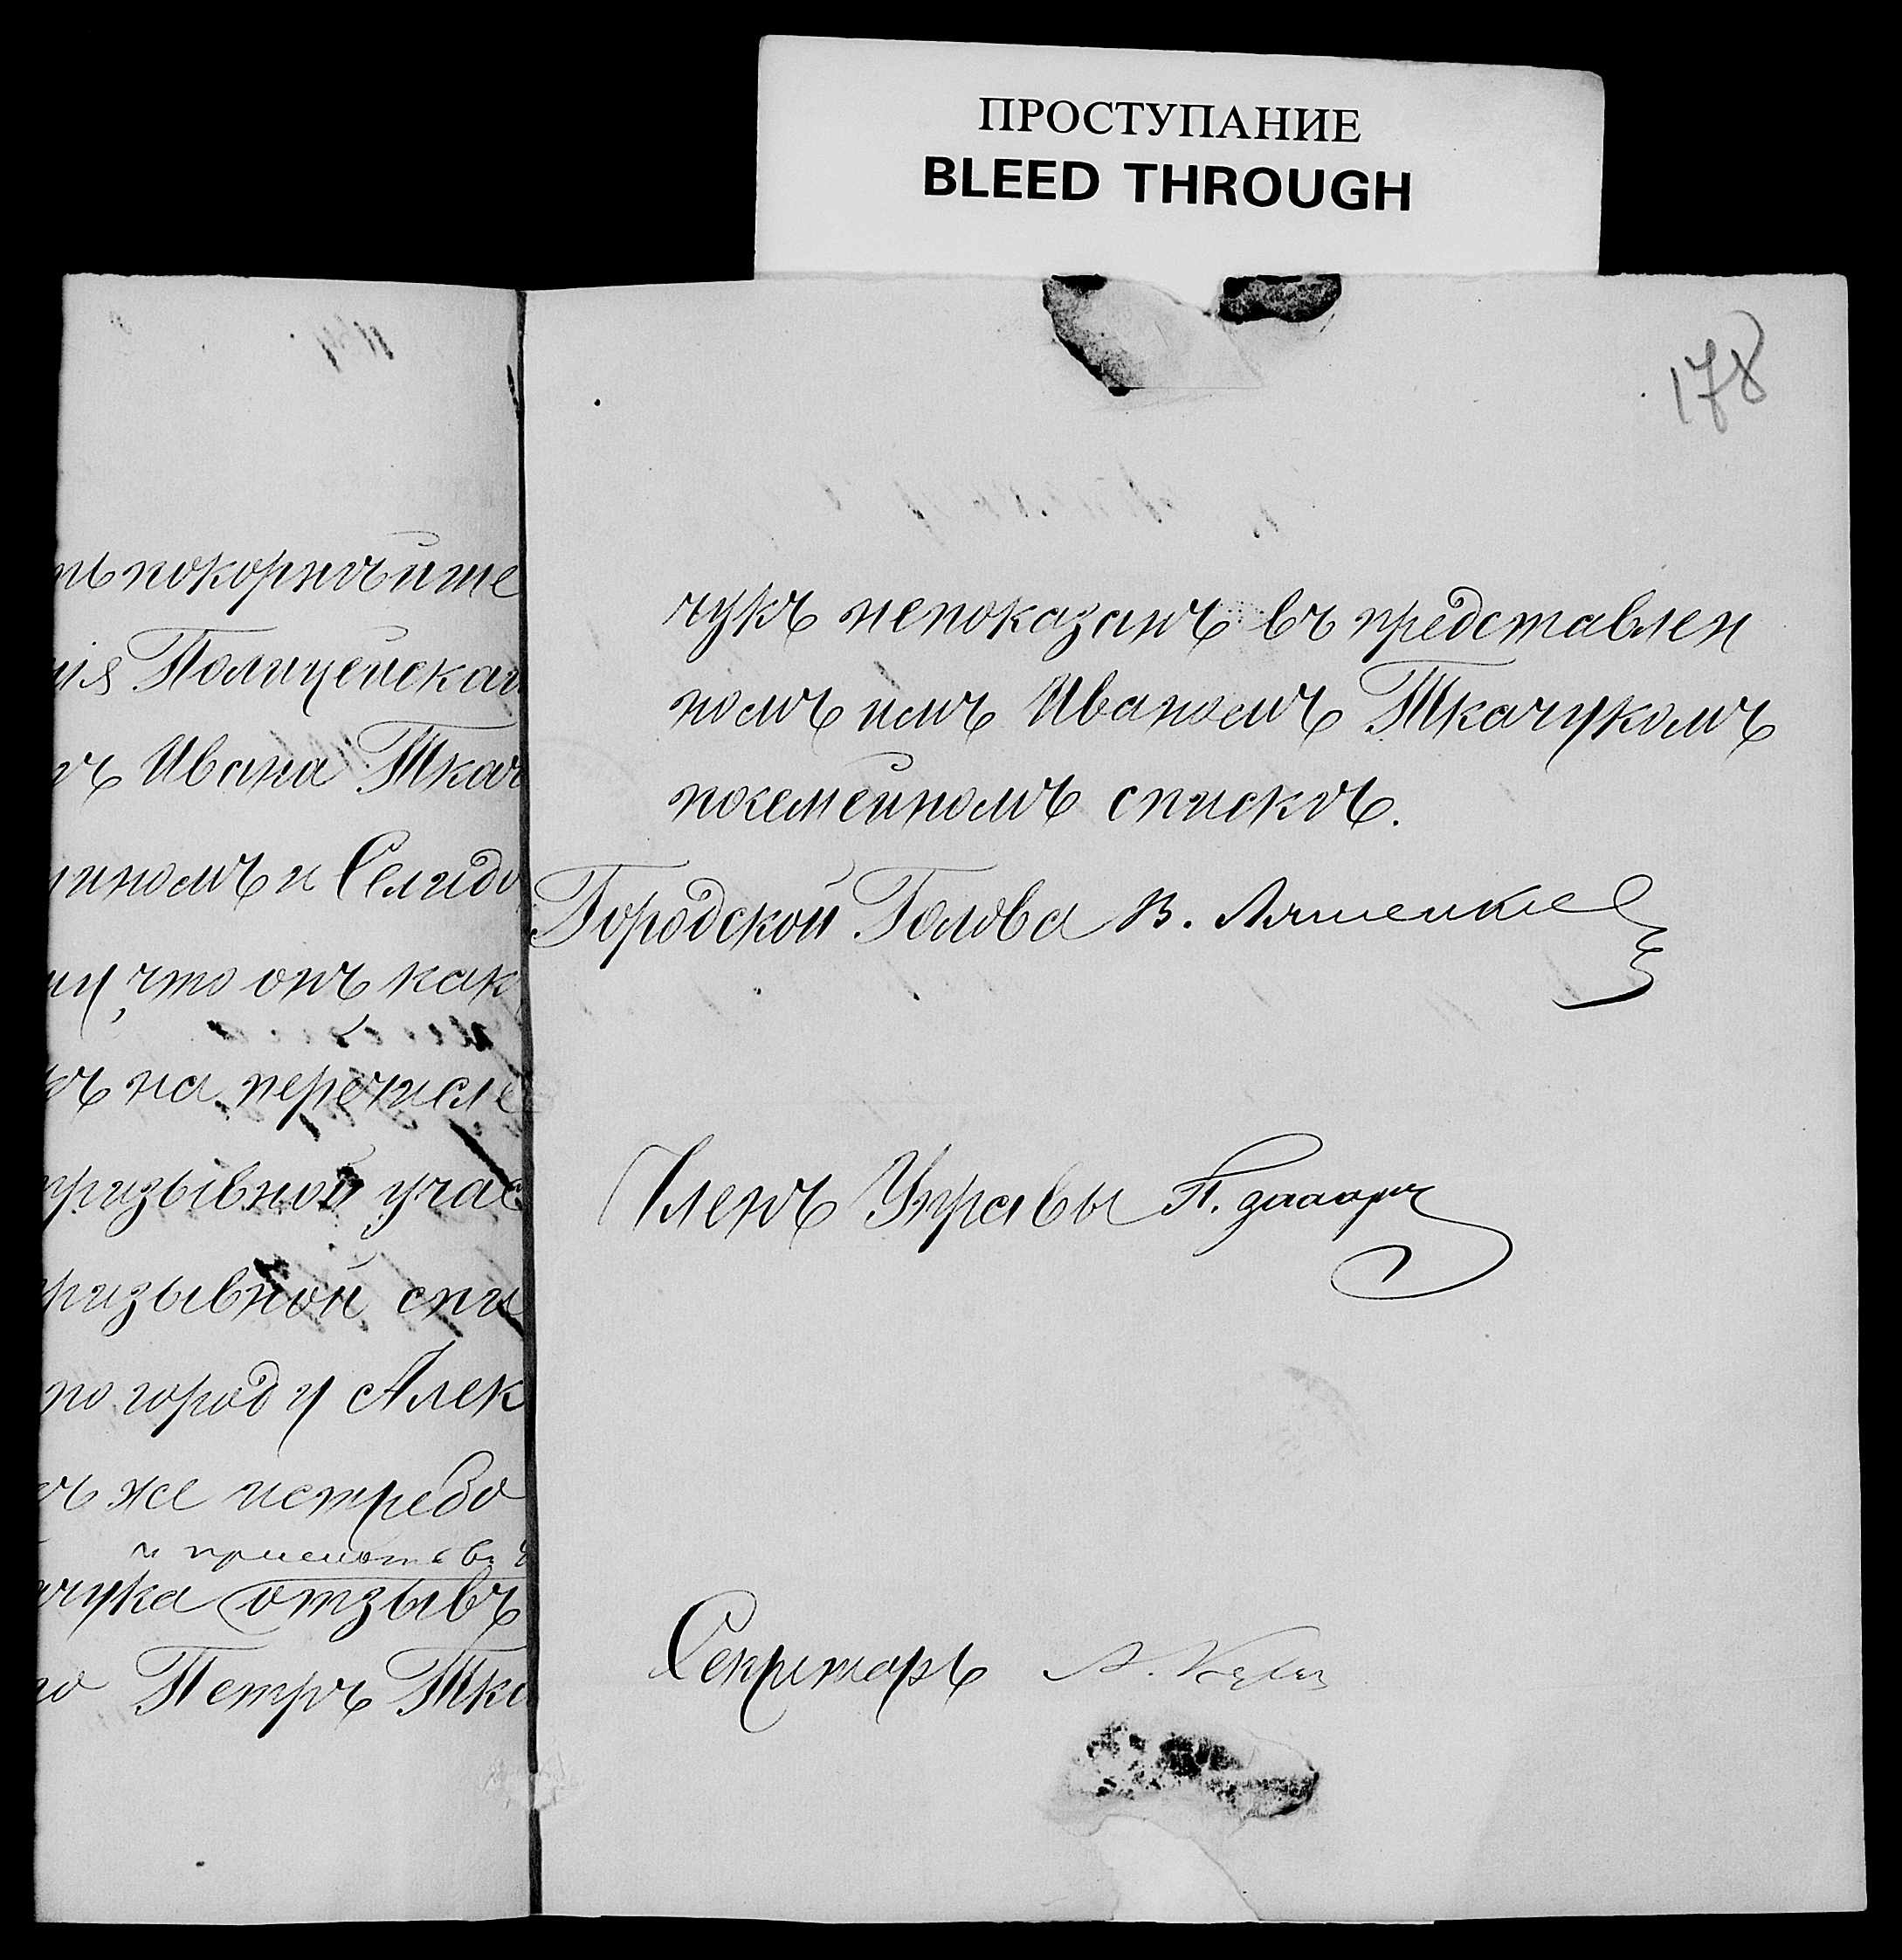 ПРОСТУПАНИЕ
BLEED THROUGH
178
ть покорнѣйше
нія Полицейскаг
ъ Ивана Ткач
номъ и Селидо
му, что онъ как
ъ на перечисле
призывной учас
призывной спи
по городу Алек
ъ же истребо
и
чука отзывъ
о Петръ Тка
чукъ непоказанъ въ представлен
номъ имъ Иваномъ Ткачукомъ
посемейномъ спискѣ.
Городской Голова В. Ляшенко
Членъ Управы П.
Секретарь А.